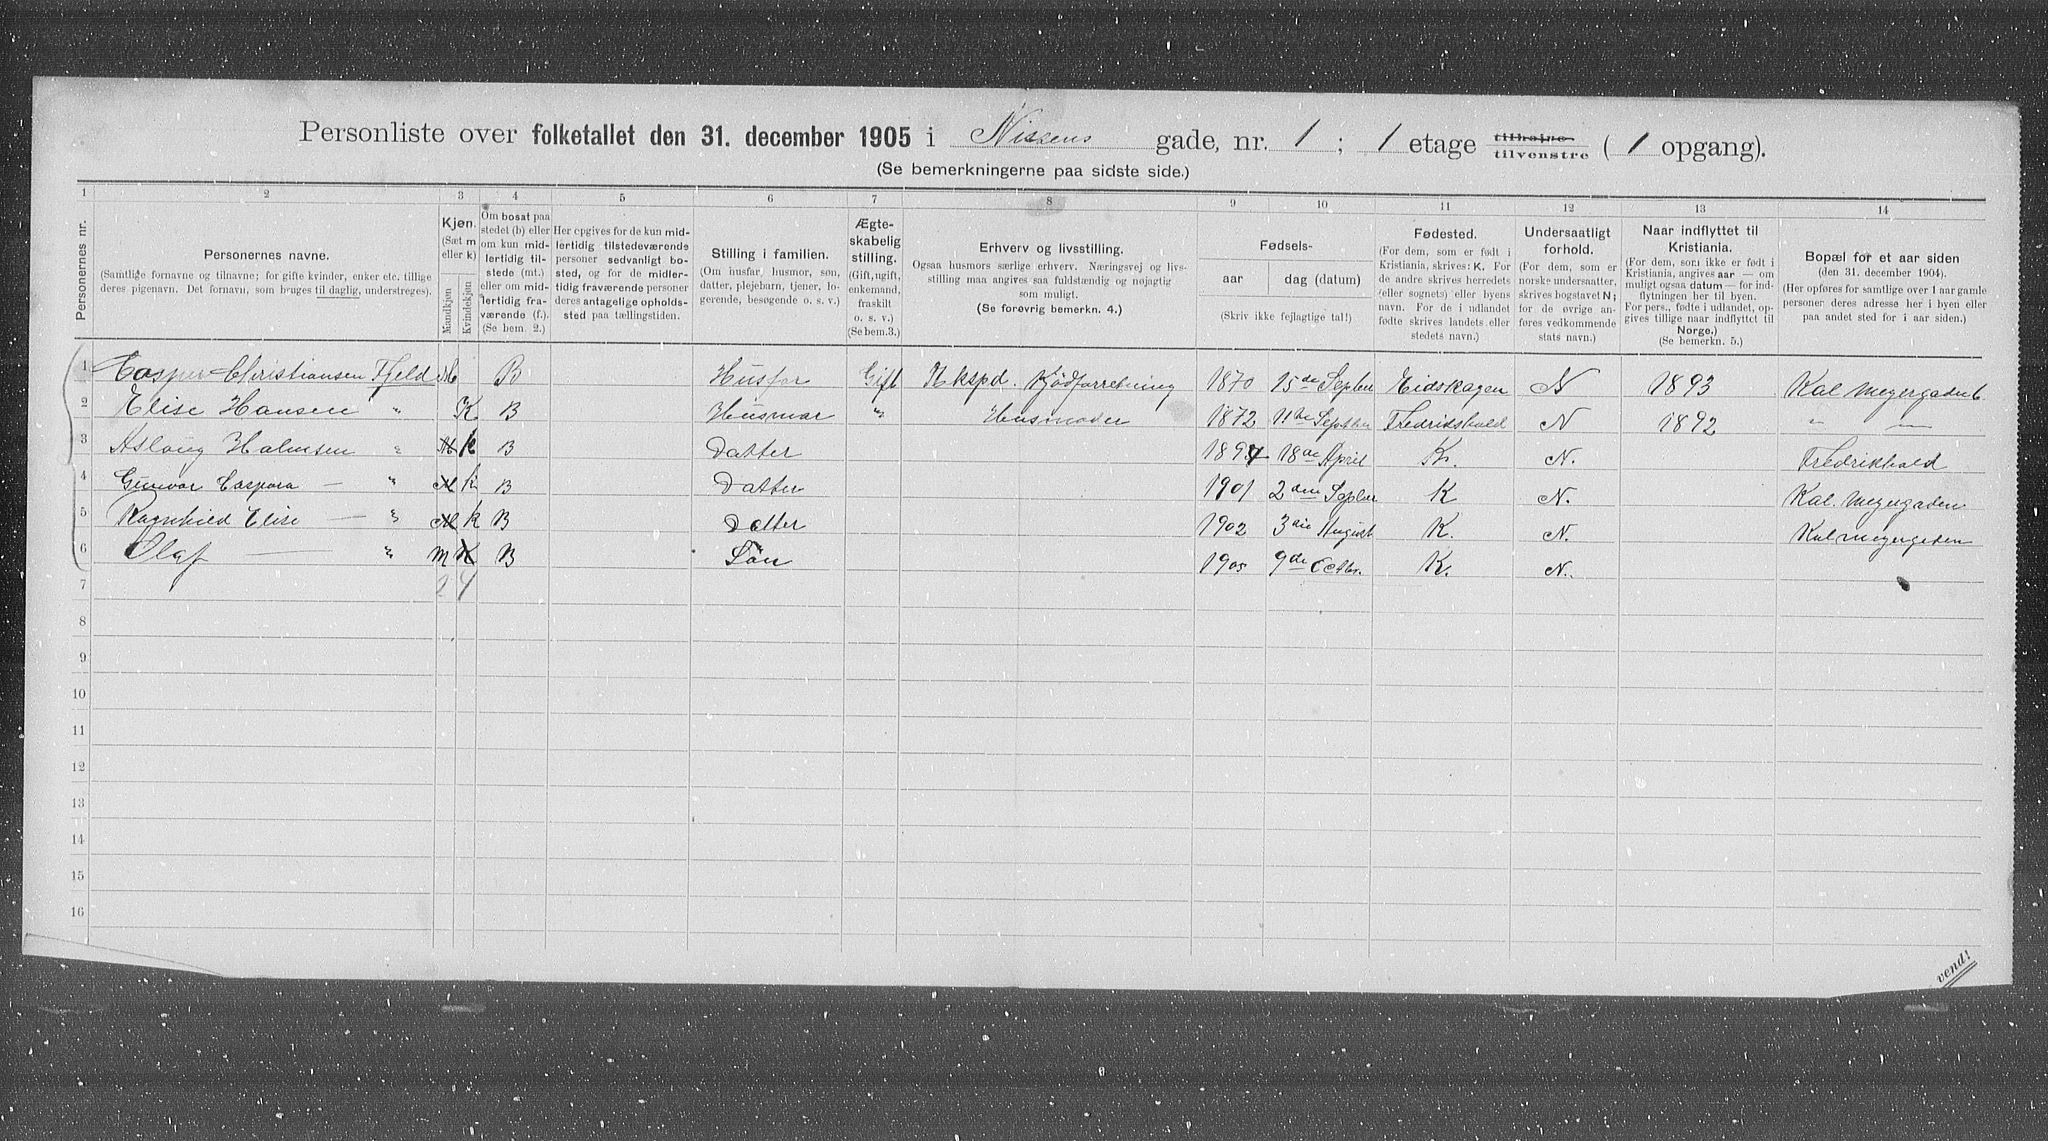 Personliste over folketallet den 31. december 1905 i Nissens gade, nr. 1 ; 1 etage tilhøire tilvenstre ( 1 opgang).
(Se bemerkningerne paa sidste side.)
1 2 3 4 5 6 7 8 9 10 11 12 13 14
Personernes nr.
Personernes navne.
(Samtlige fornavne og tilnavne; for gifte kvinder, enker etc. tillige
deres pigenavn. Det fornavn, som bruges til daglig, understreges).
Kjøn.
(Sæt m
eller k)
Mandkjøn
Kvindekjøn
Om bosat paa
stedet (b) eller
om kun mid-
lertidig til-
stede (mt.)
eller om mid-
lertidig fra-
værende (f.).
(Se bem. 2.)
Her opgives for de kun mid-
lertidig tilstedeværende
personer sedvanligt bo-
sted, og for de midler-
tidig fraværende personer
deres antagelige opholds-
sted paa tællingstiden.
Stilling i familien.
(Om husfar, husmor, søn,
datter, plejebarn, tjener, lo-
gerende, besøgende o. s. v.)
Ægte-
skabelig
stilling.
(Gift, ugift,
enkemand,
fraskilt
o. s. v.)
(Se bem.3.)
Erhverv og livsstilling.
Ogsaa husmors særlige erhverv. Næringsvej og livs-
stilling maa angives saa fuldstændig og nøjagtig
som muligt.
(Se forøvrig bemerkn. 4.)
Fødsels-
aar
dag (datum)
(Skriv ikke fejlagtige tal!)
Fødested.
(For dem, som er født i
Kristiania, skrives: K. For
de andre skrives herredets
(eller sognets) eller byens
navn. For de i udlandet
fødte skrives landets eller
stedets navn.)
Undersaatligt
forhold.
(For dem, som er
norske undersaatter,
skrives bogstavet N;
for de øvrige an-
føres vedkommende
stats navn.)
Naar indflyttet til
Kristiania.
(For dem, som ikke er født i
Kristiania, angives aar — om
muligt ogsaa datum — for ind-
flytningen her til byen.
For pers., fødte i udlandet, op-
gives tillige naar indflyttet til
Norge.)
(Se bemerkn. 5.)
Bopæl for et aar siden
(den 31. december 1904).
(Her opføres for samtlige over 1 aar gamle
personer deres adresse her i byen eller
paa andet sted for i aar siden.)
1 Casper Christiansen Fjeld M B Husfar Gift Ekspd. Kjödforretning 1870 15de Septbr Eidskogen N 1893
2 Elise Hansen " K B Husmor " Husmoder 1872 11te Septbr Fredrikshald N 1892 " —
3 Aslaug Halmsen " M k B Datter 1897 18de April K. N. Fredrikhald
4 Gunvor Caspara — " M k B Datter 1901 2den Septbr K N. Kal. Meyergaden
5 Ragnhild Elise — " M k B Datter 1902 3die August K. N. Kal meyergaden
6 Olaf — " M K B Sön 1905 9de Octbr. K. N.
7 2 4
8
9
10
11
12
13
14
15
16
vend!